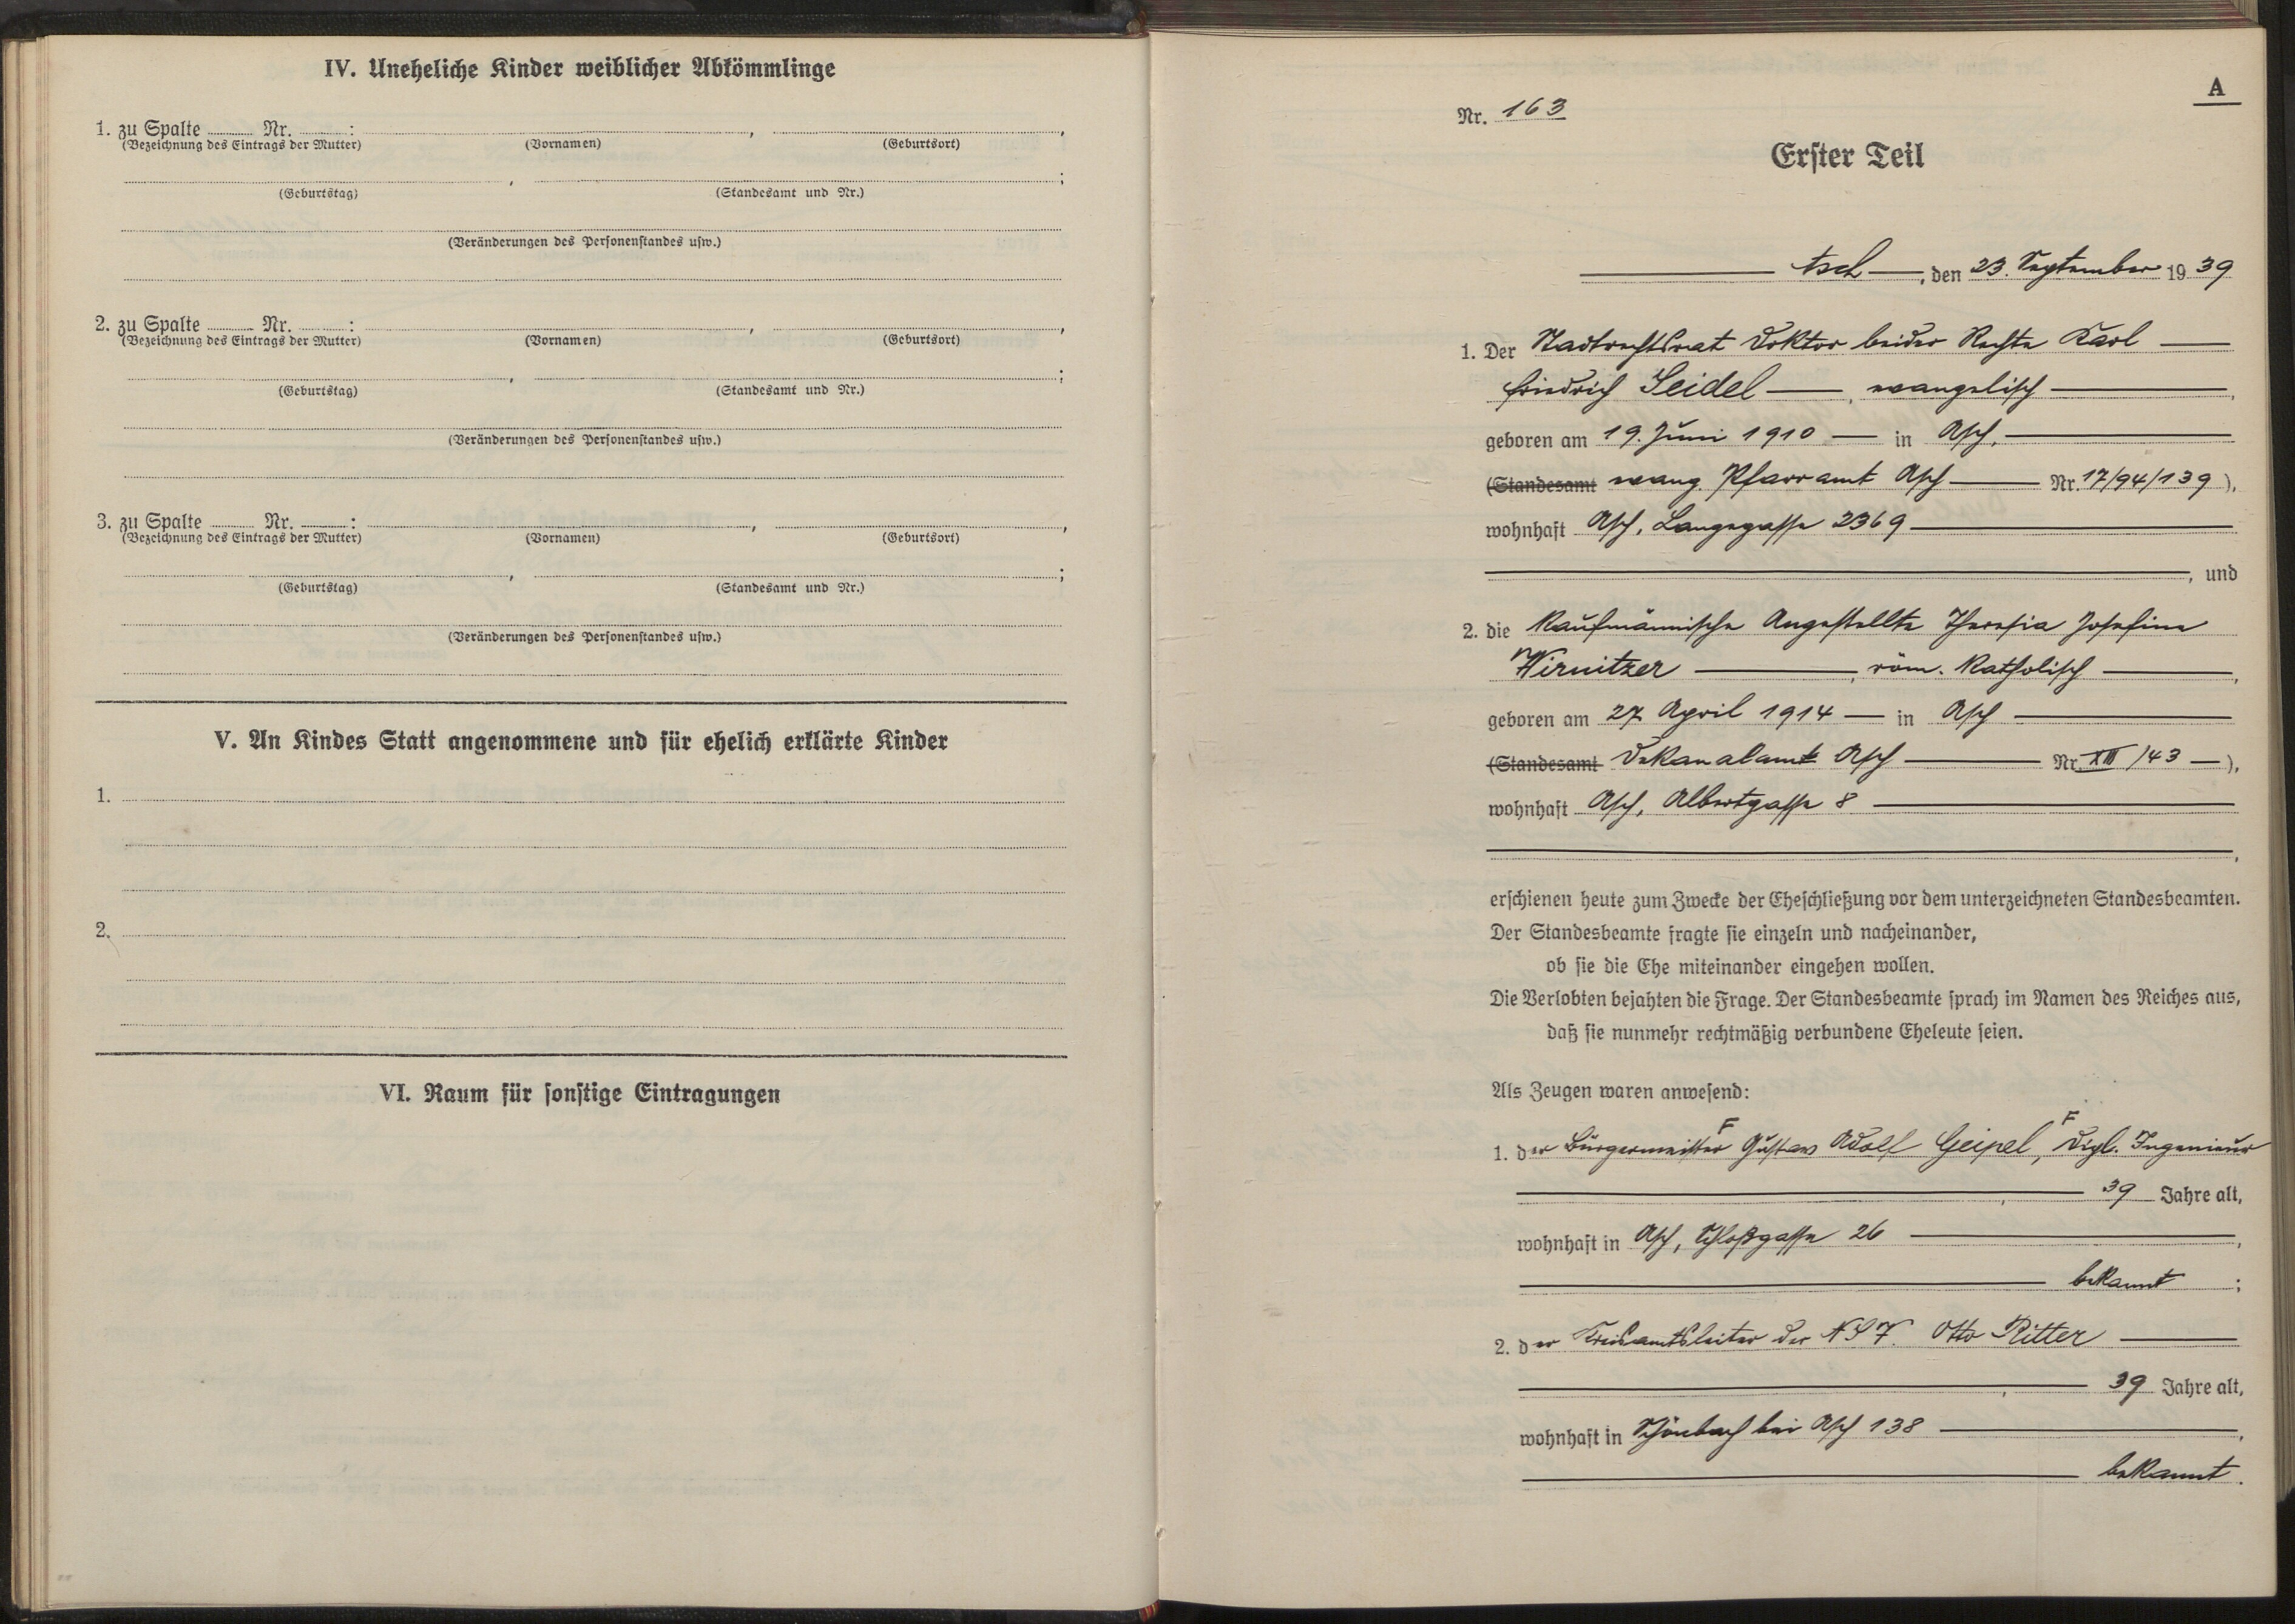 IV. Uneheliche Kinder weiblicher Abkömmlinge
1. zu Spalte ........ Nr. ........ : , ,
(Bezeichnung des Eintrags der Mutter) (Vornamen) (Geburtsort)
, ;
(Geburtstag) (Standesamt und Nr.)
(Veränderungen des Personenstandes usw.)
2. zu Spalte ........ Nr. ........ : , ,
(Bezeichnung des Eintrags der Mutter) (Vornamen) (Geburtsort)
, ;
(Geburtstag) (Standesamt und Nr.)
(Veränderungen des Personenstandes usw.)
3. zu Spalte ........ Nr. ........ : , ,
(Bezeichnung des Eintrags der Mutter) (Vornamen) (Geburtsort)
, ;
(Geburtstag) (Standesamt und Nr.)
(Veränderungen des Personenstandes usw.)
V. An Kindes Statt angenommene und für ehelich erklärte Kinder
1.
2.
VI. Raum für sonstige Eintragungen
A
Nr. 163
Erster Teil
Asch, den 23. September 1939
1. Der Stadtrechtsrat Doktor beider Rechte Karl
Friedrich Seidel, evangelisch,
geboren am 19. Juni 1910 in Asch,
(Standesamt evang. Pfarramt Asch Nr. 17/94/139),
wohnhaft Asch, Langegasse 2369
, und
2. die kaufmännische Angestellte Theresia Josefine
Wirnitzer, röm. katholisch,
geboren am 27. April 1914 in Asch
(Standesamt Dekanalamt Asch Nr. XIII/43),
wohnhaft Asch, Albertgasse 8
,
erschienen heute zum Zwecke der Eheschließung vor dem unterzeichneten Standesbeamten.
Der Standesbeamte fragte sie einzeln und nacheinander,
ob sie die Ehe miteinander eingehen wollen.
Die Verlobten bejahten die Frage. Der Standesbeamte sprach im Namen des Reiches aus,
daß sie nunmehr rechtmäßig verbundene Eheleute seien.
Als Zeugen waren anwesend:
1. der Bürgermeister Gustav Adolf Geipel, Dipl. Ingenieur
, 39 Jahre alt,
wohnhaft in Asch, Schloßgasse 26,
bekannt;
2. der Kreisamtsleiter der NSV. Otto Ritter
, 39 Jahre alt,
wohnhaft in Schönbach bei Asch 138,
bekannt.